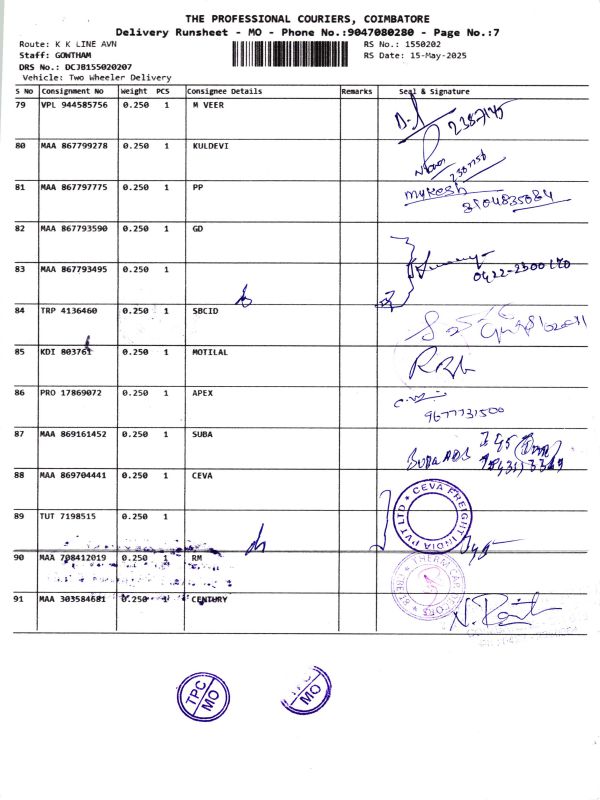 THE PROFESSIONAL COURIERS, COIMBATORE
Delivery Runsheet - MO - Phone No.:9047080280 - Page No.:7
Route: K K LINE AVN RS No.: 1550202
Staff: GOWTHAM RS Date: 15-May-2025
DRS No.: DCJB155020207
Vehicle: Two Wheeler Delivery
S No Consignment No Weight PCS Consignee Details Remarks Seal & Signature
79 VPL 944585756 0.250 1 M VEER
80 MAA 867799278 0.250 1 KULDEVI
81 MAA 867797775 0.250 1 PP Mukesh
82 MAA 867793590 0.250 1 GD
83 MAA 867793495 0.250 1 0422-2300
84 TRP 4136460 0.250 1 SBCID
85 KDI 80376 0.250 1 MOTILAL
86 PRO 17869072 0.250 1 APEX 9677731500
87 MAA 869161452 0.250 1 SUBA
88 MAA 869704441 0.250 1 CEVA
CEVA FREIGHT INDIA PVT LTD
89 TUT 7198515 0.250 1
90 MAA 708412019 0.250 1 RM
91 MAA 303584681 0.250 1 CENTURY
TPC MO
TPC MO